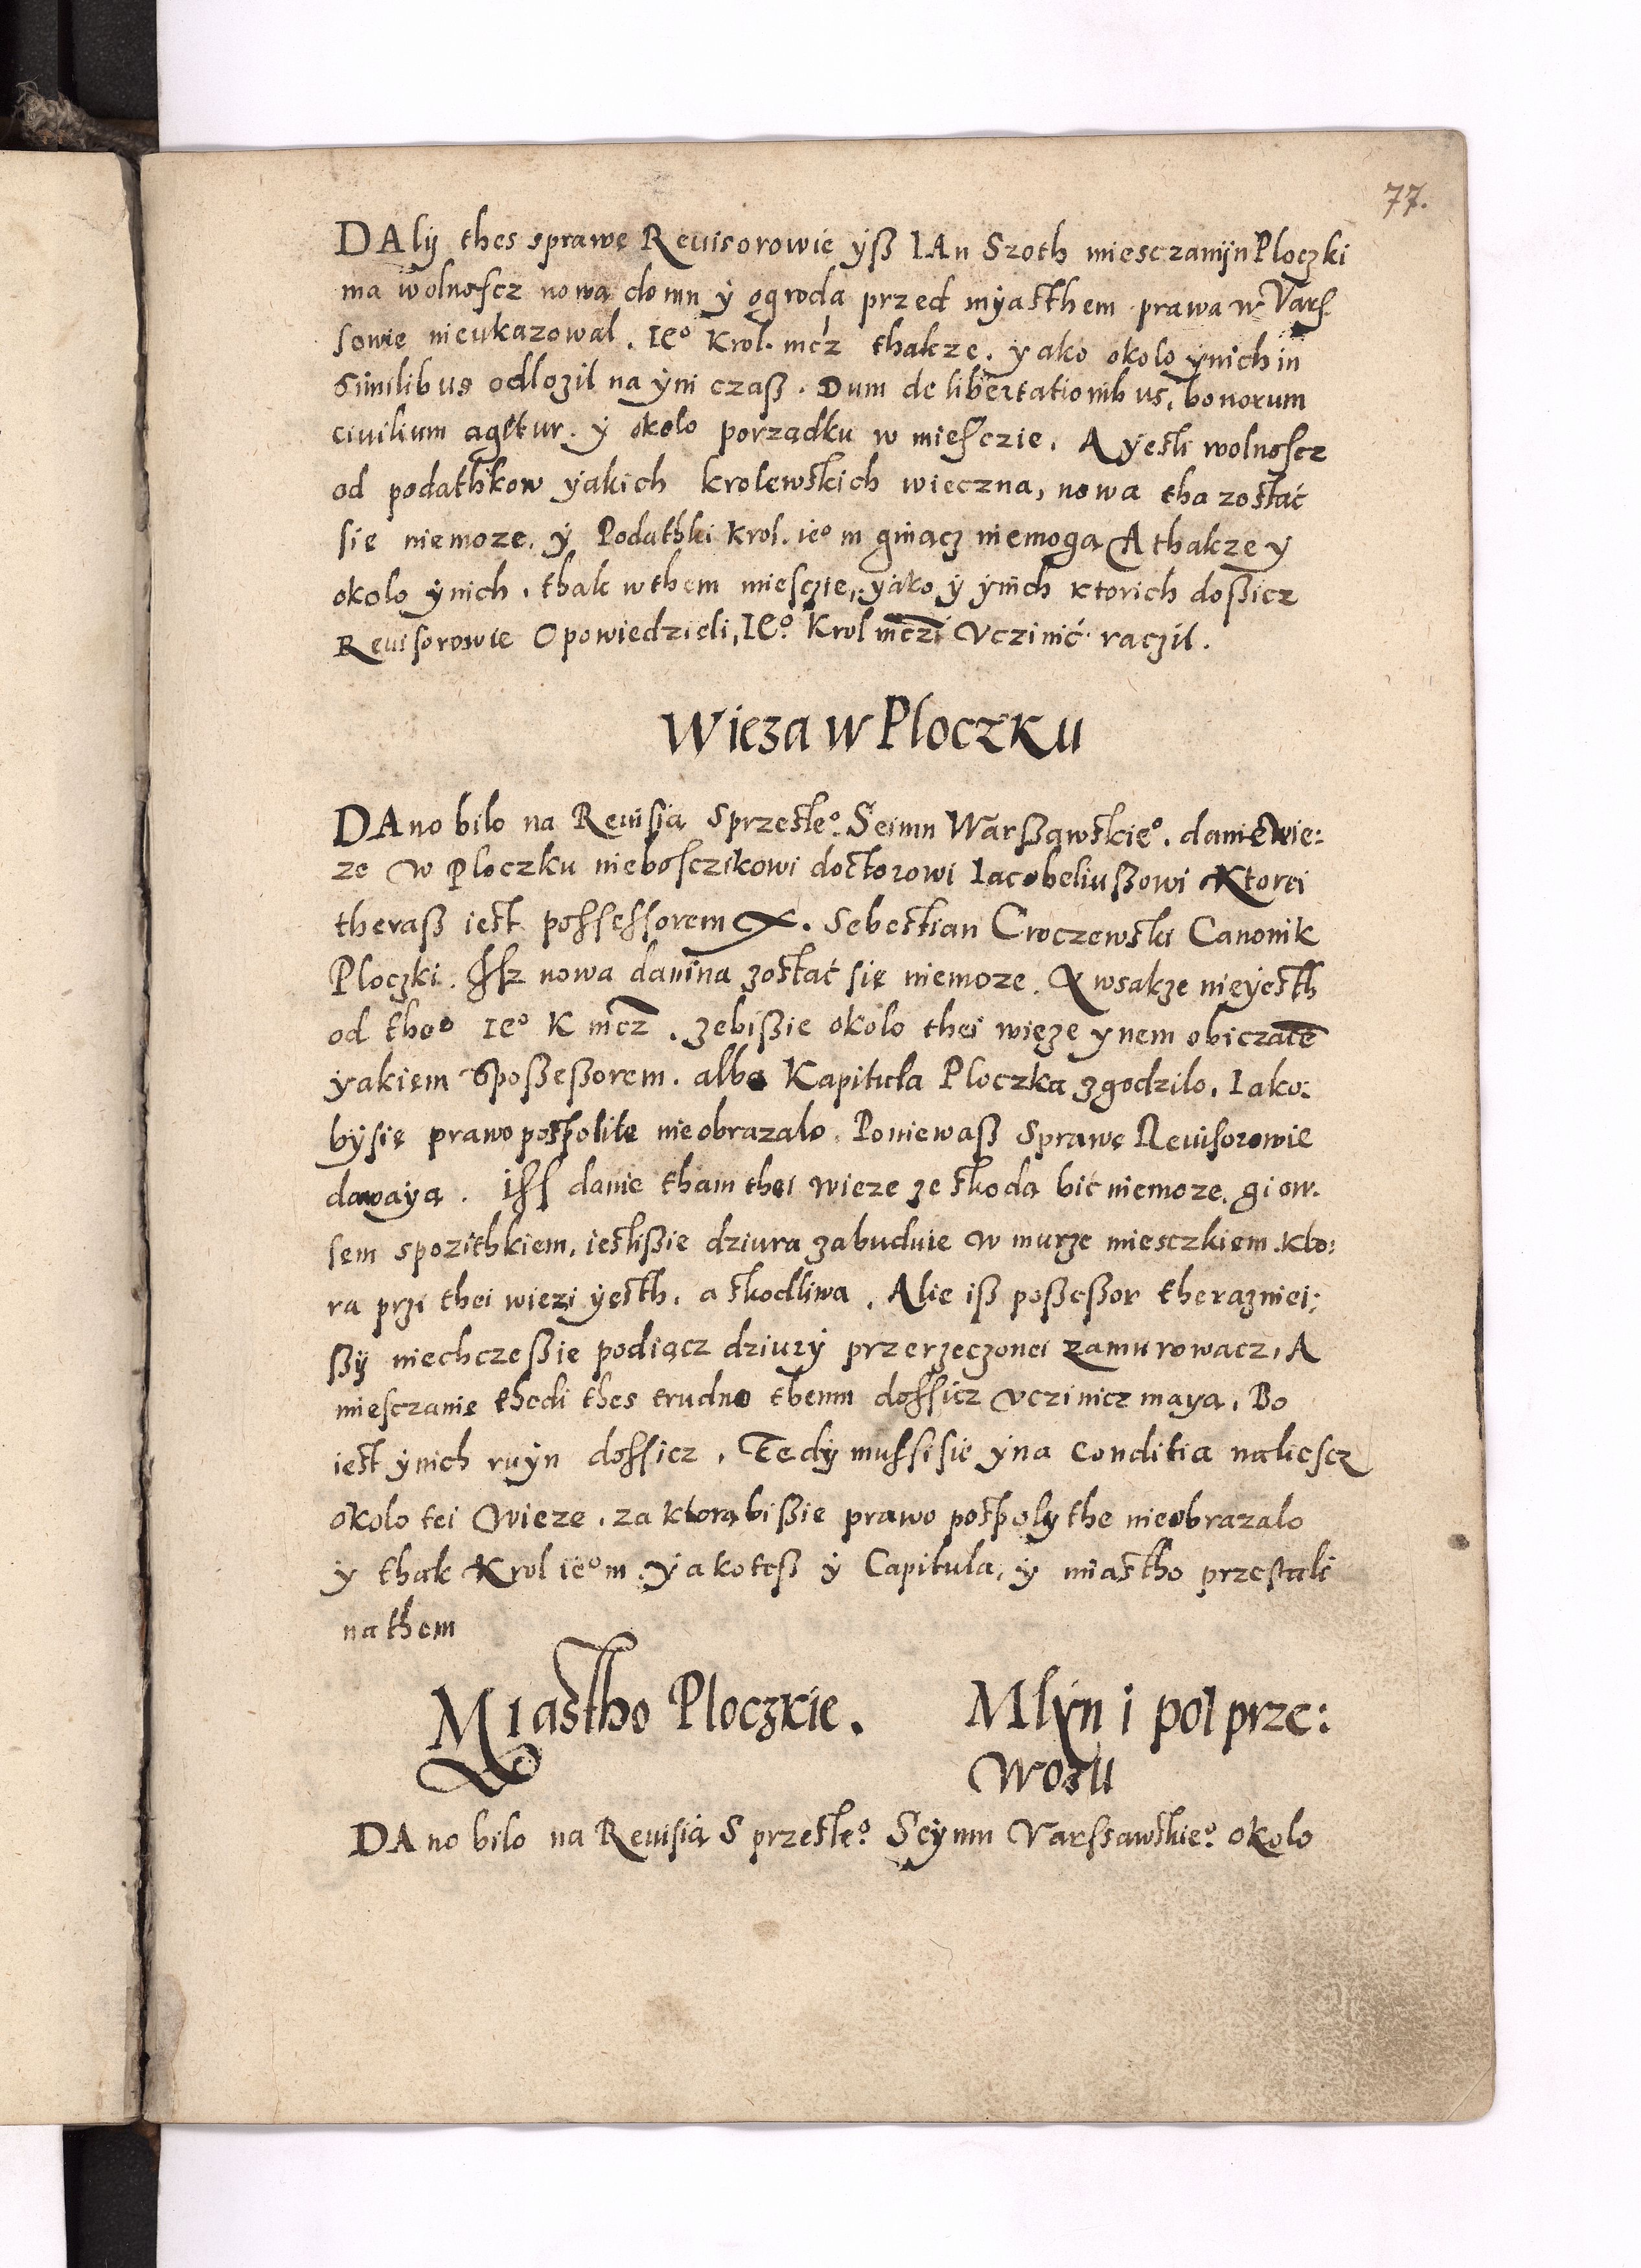 77.
DAly thes sprawę Reuisorowie ÿß IAn Szoth miesczanijn Ploczki
ma wolnoscz nowa domu ÿ ogroda przed mÿasthem prawa w Vars
sowie nieukazowal. Ieº Krol. mcż thakze. yako okolo ÿnich in
similibus odlozil na ÿni czaß. Dum de libertationib us, bonorum
ciuilium agitur. ÿ okolo porządku w miesczie. A ÿesti wolnoscz
od podathkow ÿakich krolewskich wieczna, nowa tha zostać
się niemoze. ÿ Podathki Krol. ieº m ginącz niemoga A thakze y
okolo ÿnich. thak wthem miesczie, yako ÿ ÿnich ktorich doßicz
Reuisorowie Opowiedzieli, Ieº Krol mczi Vczinić raczil.
Wieza w Ploczku
DAno bilo na Reuisią Sprzesleº Seimu Warßawskieº. danie wie:
ze w Ploczku nieboscżikowi doctorowi Iacobeliußowi Ktorei
theraß iest possessorem X. Sebestian Croczewski Canonik
Ploczki. Isz nowa danina zostać się niemoze. A wsakze nieÿesth
od theº Ieº K mcz. zebißie okolo thei więze ynem obiczaie
yakiem Spoßeßorem. albo Kapitula Ploczka zgodzilo. Iako:
bÿsię prawo pospolite nieobrazalo. Poniewaß Sprawę Reuisorowie
dawaÿą. Iss danie tham thei wieze ze skoda bić niemoze. gi ow.
sem spozithkiem, iestlißie dziura zabuduie w murze miesczkiem. kto:
ra przi thei wiezi ÿesth. a skodliwa. Alie iß poßeßor therazniei:
ßÿ niechczeßie podiącz dziurÿ przerzeczonei zamurowacz, A
miesczanie thedi thes trudno themu dossicz vczinicz maya. Bo
iest ÿnich ruÿn dossicz. Tedÿ mussisie ÿna Conditia naliescz
okolo tei Wieze. za ktorąbißie prawo pospolythe nieobrazalo
y thak Krol ieº m. ÿakoteß ÿ Capitula, ÿ miastho przestali
nathem
Miastho Ploczkie. Mlÿn i pol prze:
wozu
DAno bilo na Reuisią S przesleº Seÿmu Varssawskieº okolo